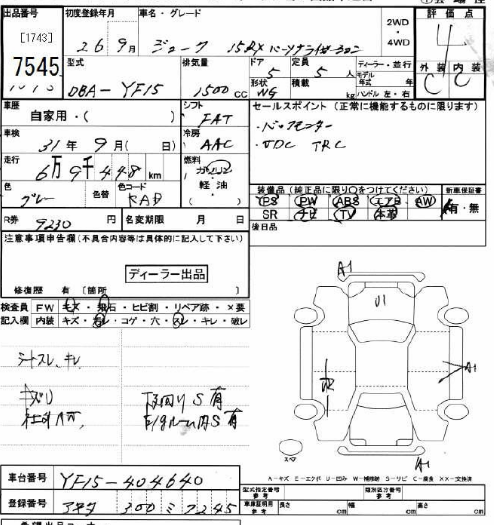 出品番号 初度登録年月 車名・グレード 2WD ・ 4WD 評価点
[1743] 26 9月 ジューク 15RX パーソナライゼーション 4
7545 型式 排気量 ドア 定員 ディーラー・並行 外装 内装
DBA-YF15 1500cc 5 5人 モデル年式 年 C C
形状 積載 kg ハンドル 左・右
WG
車歴 シフト セールスポイント (正常に機能するものに限ります)
自家用・( ) FAT ・バックセンサー
車検 冷房 ・VDC TRC
31年 9月( 日) AAC
走行 燃料
6万9千448km ガソリン
軽油
( )
色 色替 色コード 装備品 (純正品に限り○をつけてください) 新車保証書
グレー KAD PS PW ABS エアB AW 有・無
R券 9230円 名変期限 月 日 SR ナビ TV 本革
後日品
注意事項申告欄(不具合内容等は具体的に記入して下さい)
ディーラー出品
修復歴 有 [箇所 ]
検査員記入欄 FW キズ・飛石・ヒビ割・リペア跡・×要
内装 キズ・汚レ・コゲ・穴・スレ・キレ・破レ
シートスレ、キレ
下回りS有
E/gルーム内S有
A1
U1
A1
A1
スペア
A-キズ E-エクボ U-凹み W-補修跡 S-サビ C-腐食 XX-交換済
車台番号 YF15-404640
型式指定番号 参考 類別区分番号 参考
登録番号 300 ミ 2245
車庫証明用 参考 長さ cm 幅 cm 高さ cm